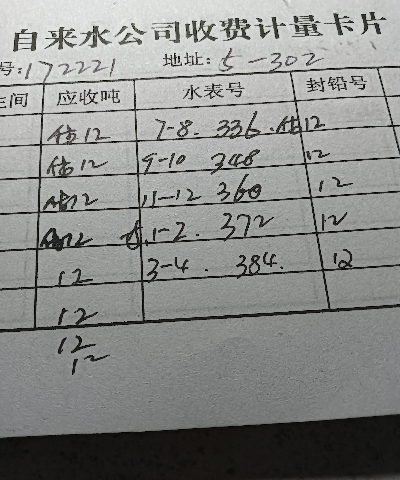 自来水公司收费计量卡片
号:172221 地址:5-302
生间 应收吨 水表号 封铅号
估12 7-8. 336. 估12
估12 9-10 348 12
估12 11-12 360 12
12 1-2. 372 12
12 3-4. 384. 12
12
12
12